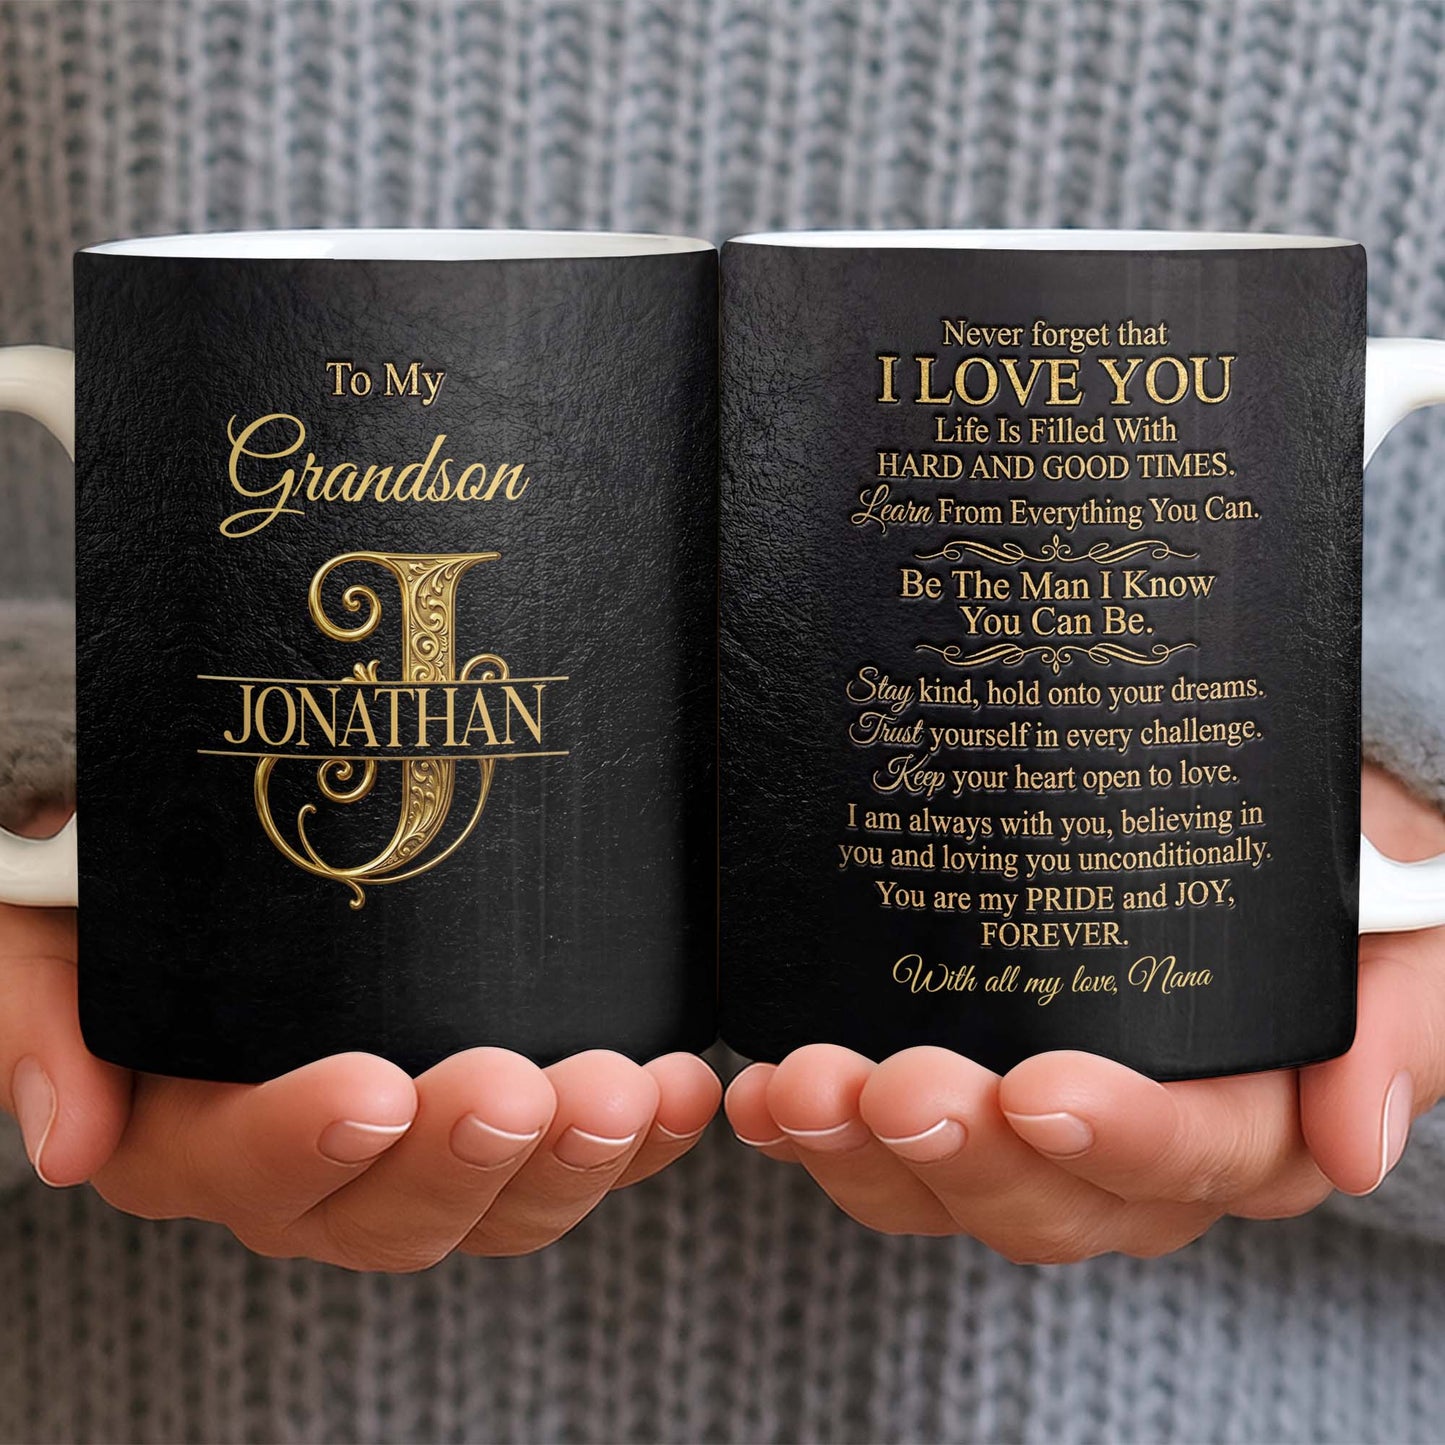 To My
Grandson
J
JONATHAN
Never forget that
I LOVE YOU
Life Is Filled With
HARD AND GOOD TIMES.
Learn From Everything You Can.
Be The Man I Know
You Can Be.
Stay kind, hold onto your dreams.
Trust yourself in every challenge.
Keep your heart open to love.
I am always with you, believing in
you and loving you unconditionally.
You are my PRIDE and JOY,
FOREVER.
With all my love, Nana